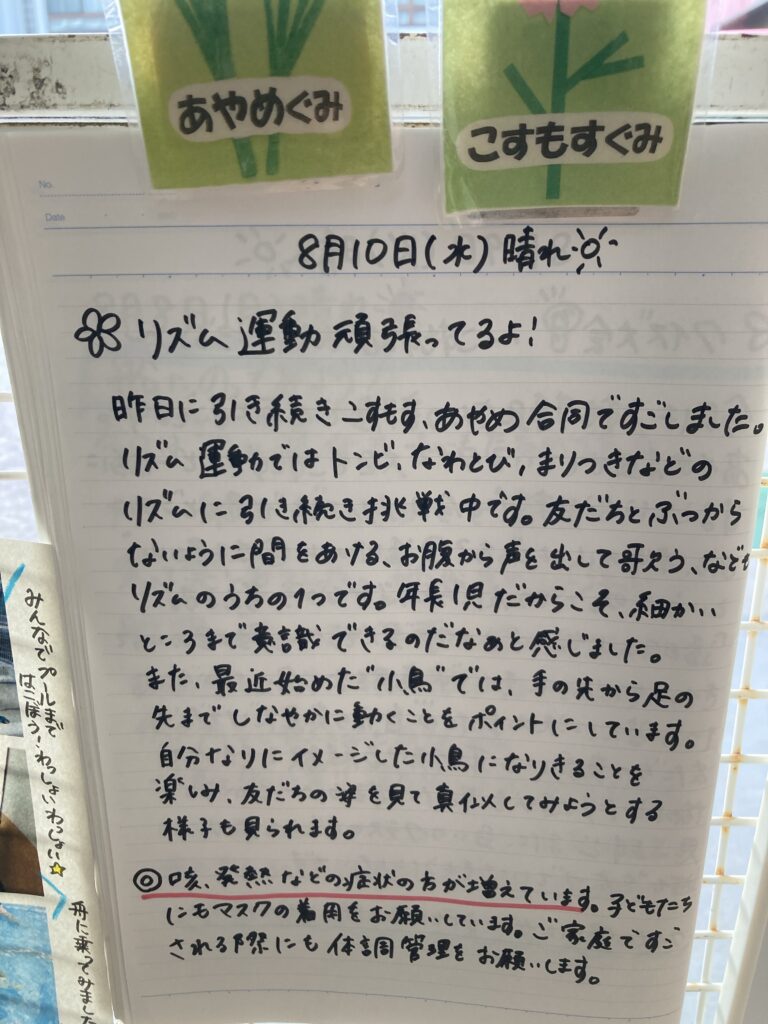 あやめぐみ
こすもすぐみ
No.
Date
8月10日(水)晴れ
リズム運動頑張ってるよ!
昨日に引き続きこすもす、あやめ合同ですごしました。
リズム運動ではトンビ、なわとび、まりつきなどの
リズムに引き続き挑戦中です。友だちとぶつから
ないように間をあける、お腹から声を出して歌う、なども
リズムのうちの1つです。年長児だからこそ、細かい
ところまで意識できるのだなぁと感じました。
また、最近始めた"小鳥"では、手の先から足の
先までしなやかに動くことをポイントにしています。
自分なりにイメージした小鳥になりきることを
楽しみ、友だちの姿を見て真似してみようとする
様子も見られます。
◎咳、発熱などの症状の方が増えています。子どもたち
にもマスクの着用をお願いしています。ご家庭ですご
される際にも体調管理をお願いします。
みんなでプールまで
はこぼう!わっしょいわっしょい
舟に乗ってみました